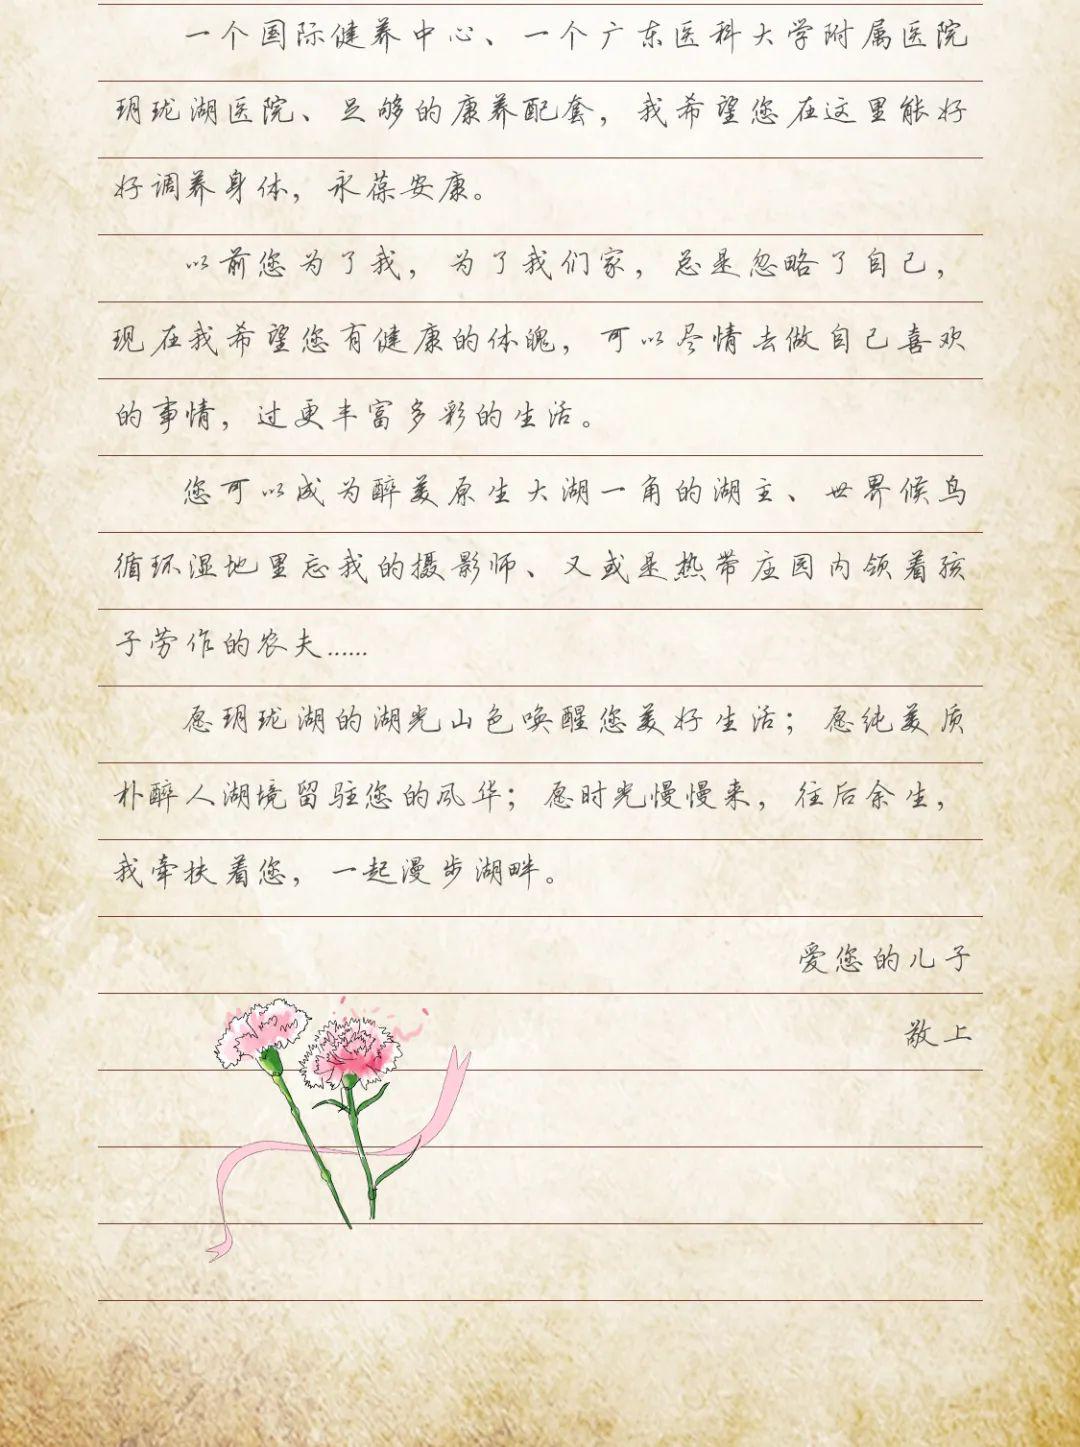 一个国际健养中心、一个广东医科大学附属医院
玥珑湖医院、足够的康养配套，我希望您在这里能好
好调养身体，永葆安康。
以前您为了我，为了我们家，总是忽略了自己，
现在我希望您有健康的体魄，可以尽情去做自己喜欢
的事情，过更丰富多彩的生活。
您可以成为醉美原生大湖一角的湖主、世界候鸟
循环湿地里忘我的摄影师、又或是热带庄园内领着孩
子劳作的农夫……
愿玥珑湖的湖光山色唤醒您美好生活；愿纯美质
朴醉人湖境留驻您的风华；愿时光慢慢来，往后余生，
我牵扶着您，一起漫步湖畔。
爱您的儿子
敬上